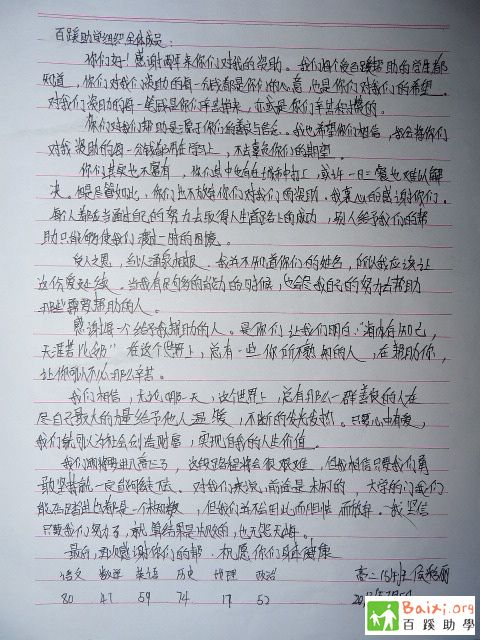 百蹊助学组织全体成员：
你们好！感谢两年来你们对我的资助。我们每个受百蹊帮助的学生都
知道，你们对我们资助的每一分钱都是你们的心意，也是你们对我们的希望。
对我们资助的每一笔钱是你们辛苦挣来，亦或是你们辛苦积攒的。
你们对我们帮助是源于你们的善良与信念。我也希望你们相信，我会将你们
对我资助的每一分钱都用在学习上，不去辜负你们的期望。
你们其实也不富有，你们其中也有在城市中打，或许一日三餐也难以解
决。但是尽管如此，你们也不放弃你们对我们的资助，我衷心的感谢你们。
每个人都应当通过自己的努力去取得人生道路上的成功，别人给予我们的帮
助只能够使我们渡过一时的困境。
受人之恩，给以涌泉相报。我并不知道你们的姓名，所以我应该让
这份爱延续。当我有足够的能力的时候，也会尽我自己的努力去帮助
那些需要帮助的人。
感谢每一个给予我帮助的人。是你们让我们明白“海内存知己，
天涯若比邻”在这个世界上，总有一些你所不熟知的人，在帮助你，
让你可以不那么辛苦。
我们相信，无论哪一天，这个世界上，总有那么一群善良的人在
尽自己最大的力量给予他人温暖，不断的发光发热。只要心中有爱，
我们就可以为社会创造财富，实现自我的人生价值。
我们即将要进入高三了，这段路程将会很艰难，但我相信只要我们勇
敢坚持就一定能够继续下去。对我们来说，前途是未知的，大学的门我们
能否踏进也都是一个未知数，但我们并不会因此而胆怯而放弃。我坚信
只要我们努力了，就算结果是失败的，也无怨无悔。
最后，再次感谢你们的帮助，祝愿你们身体健康
语文 数学 英语 历史 地理 政治 高二
80 47 59 74 17 52
Baixi.org
百蹊助學